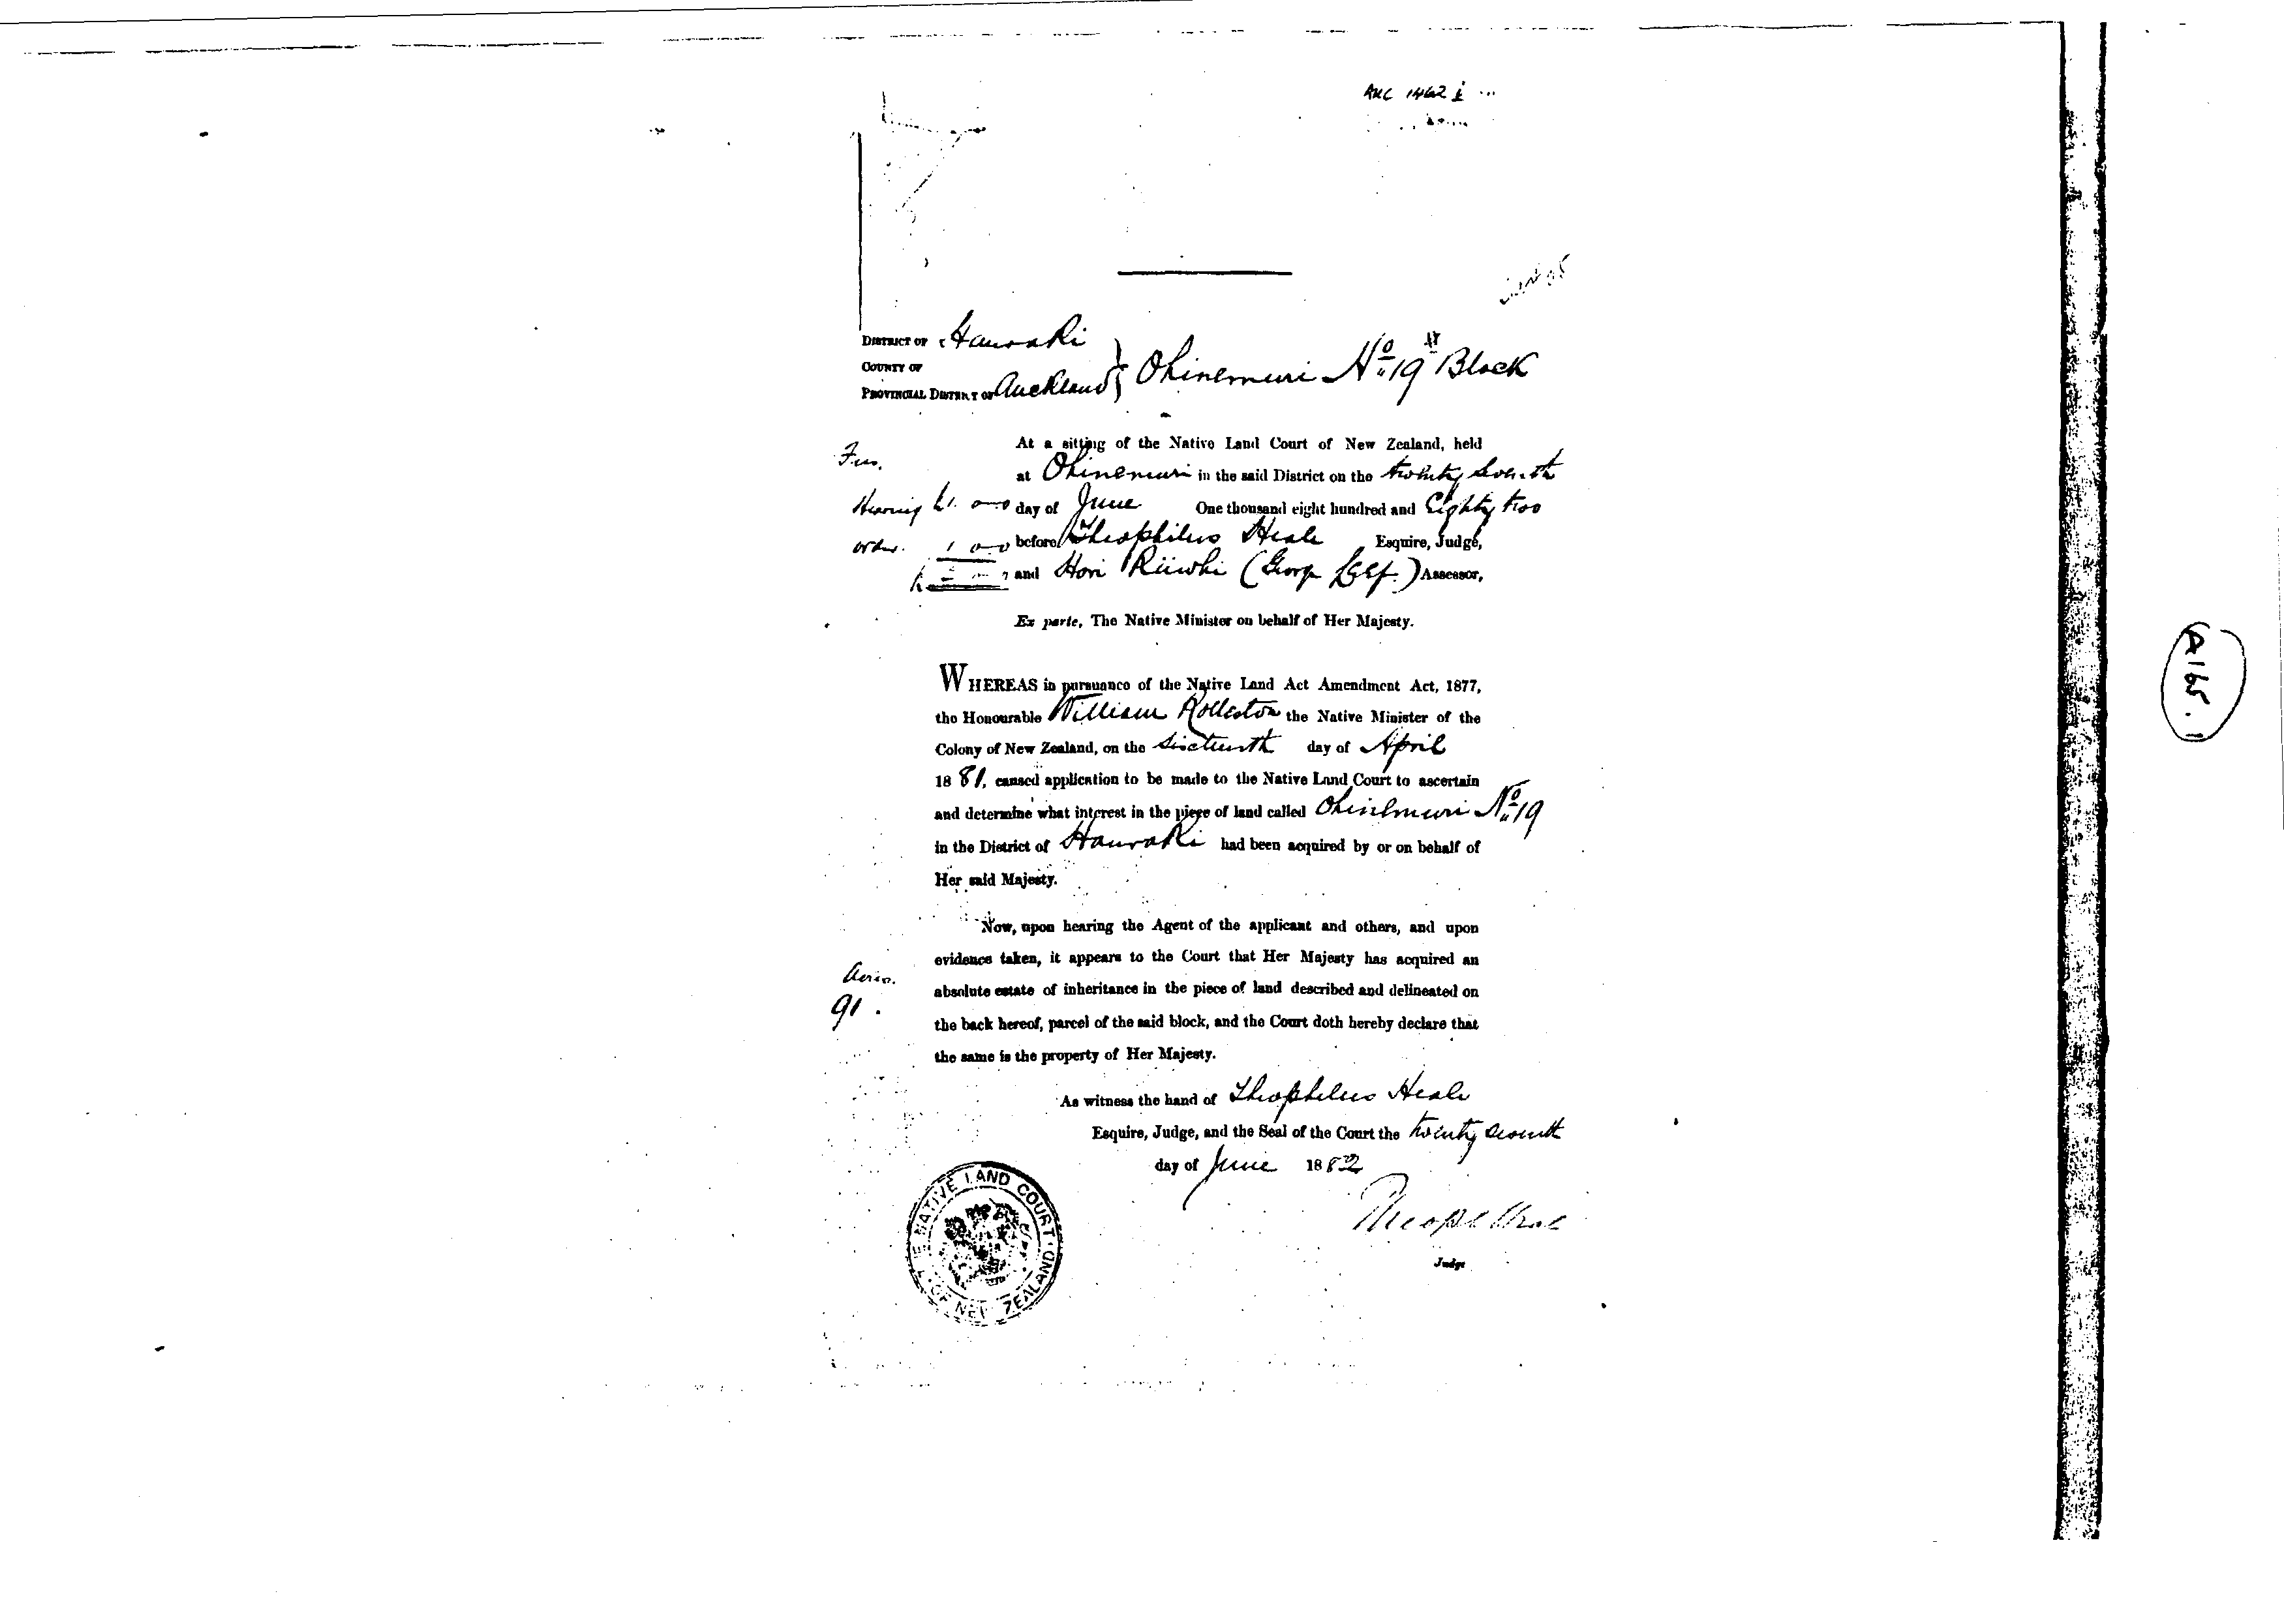 AKC 1462
DISTRICT OF Hauraki
COUNTY OF
PROVINCIAL DISTRICT OF Auckland } Ohinemuri No 19 Block
At a sitting of the Native Land Court of New Zealand, held
Fees.
at Ohinemuri in the said District on the twenty seventh
Hearing day of June One thousand eight hundred and Eighty two
order. 1 0 0 before Theophilus Heale Esquire, Judge,
and Hori Riiwhi (George Leaf.) Assessor,
Ex parte, The Native Minister on behalf of Her Majesty.
WHEREAS in pursuance of the Native Land Act Amendment Act, 1877,
the Honourable William Rolleston the Native Minister of the
Colony of New Zealand, on the Sixteenth day of April
1881, caused application to be made to the Native Land Court to ascertain
and determine what interest in the piece of land called Ohinemuri No 19
in the District of Hauraki had been acquired by or on behalf of
Her said Majesty.
Now, upon hearing the Agent of the applicant and others, and upon
evidence taken, it appears to the Court that Her Majesty has acquired an
Acres.
absolute estate of inheritance in the piece of land described and delineated on
91.
the back hereof, parcel of the said block, and the Court doth hereby declare that
the same is the property of Her Majesty.
As witness the hand of Theophilus Heale
Esquire, Judge, and the Seal of the Court the twenty seventh
day of June 1882
Theoph Heale
Judge
THE NATIVE LAND COURT OF NEW ZEALAND
A165.1